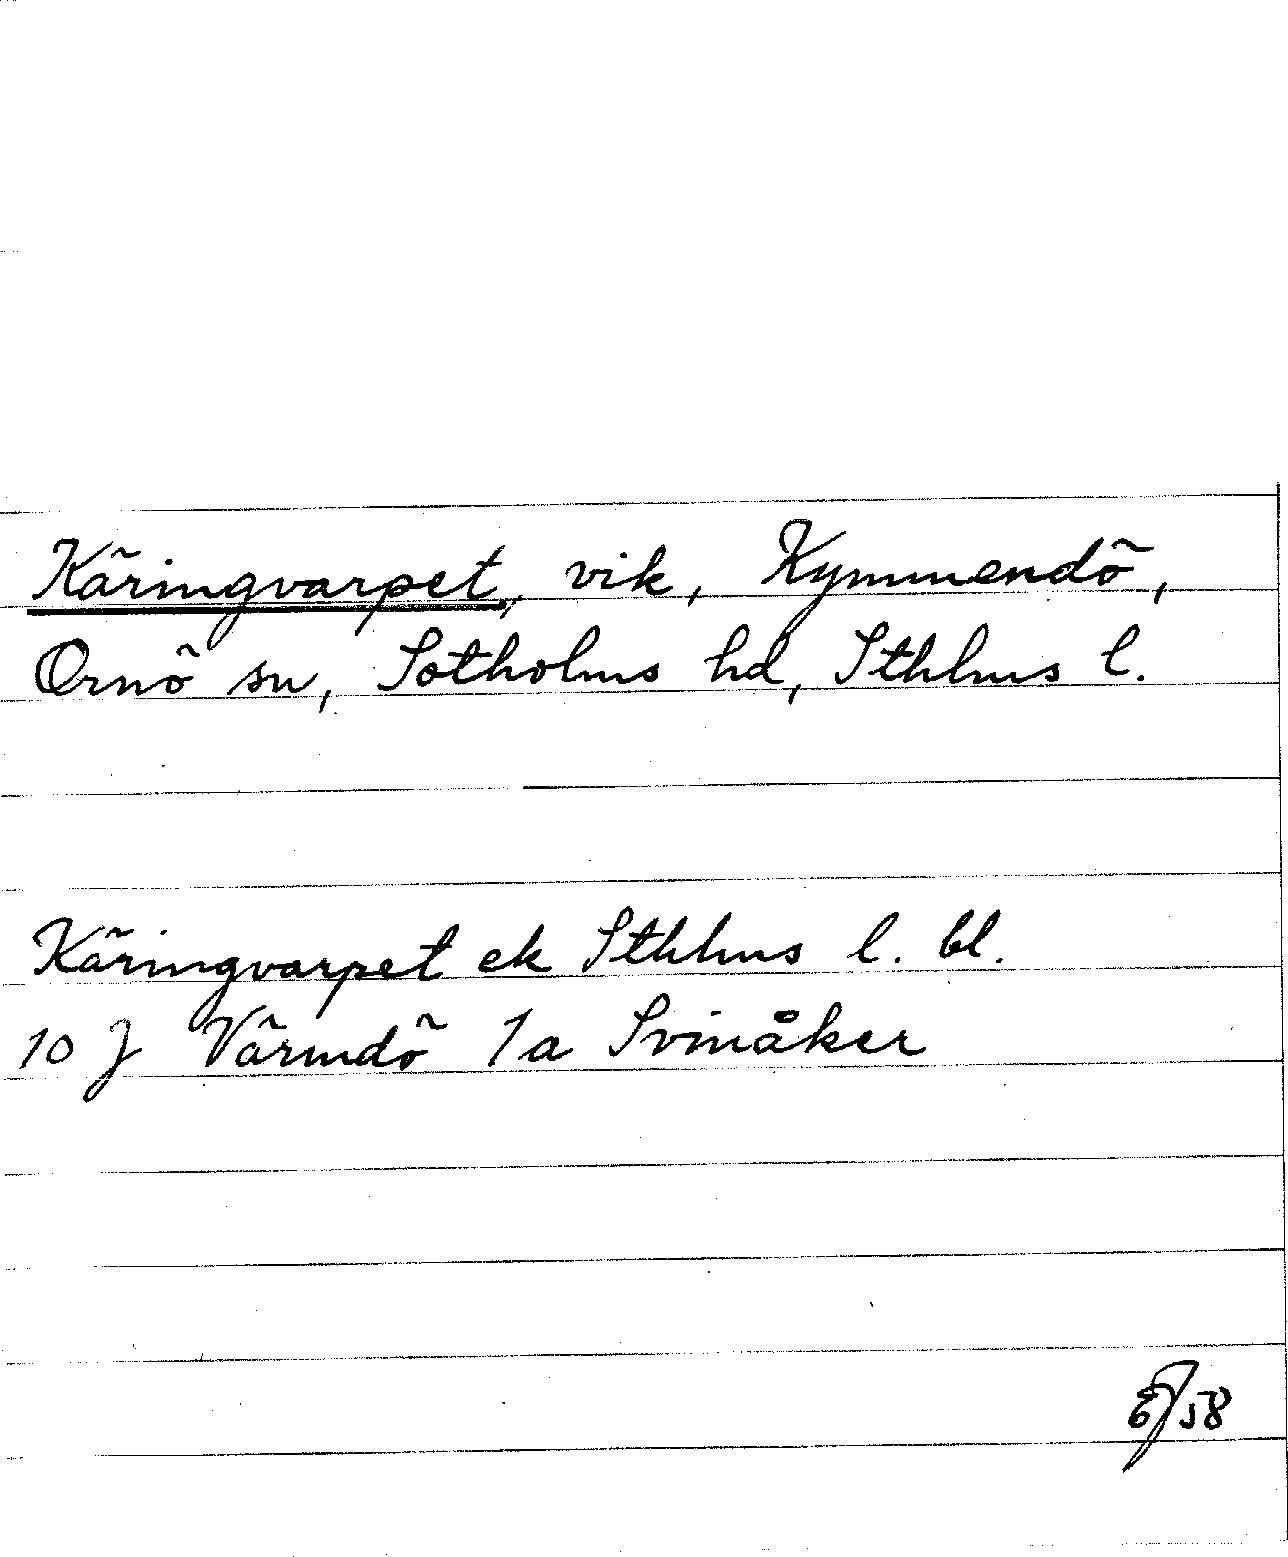 Käringvarpet, vik, Kymmendö,
Ornö sn, Sotholms hd, Sthlms l.
Käringvarpet ek Sthlms l. bl.
10 J Värmdö 1a Svinåker
58